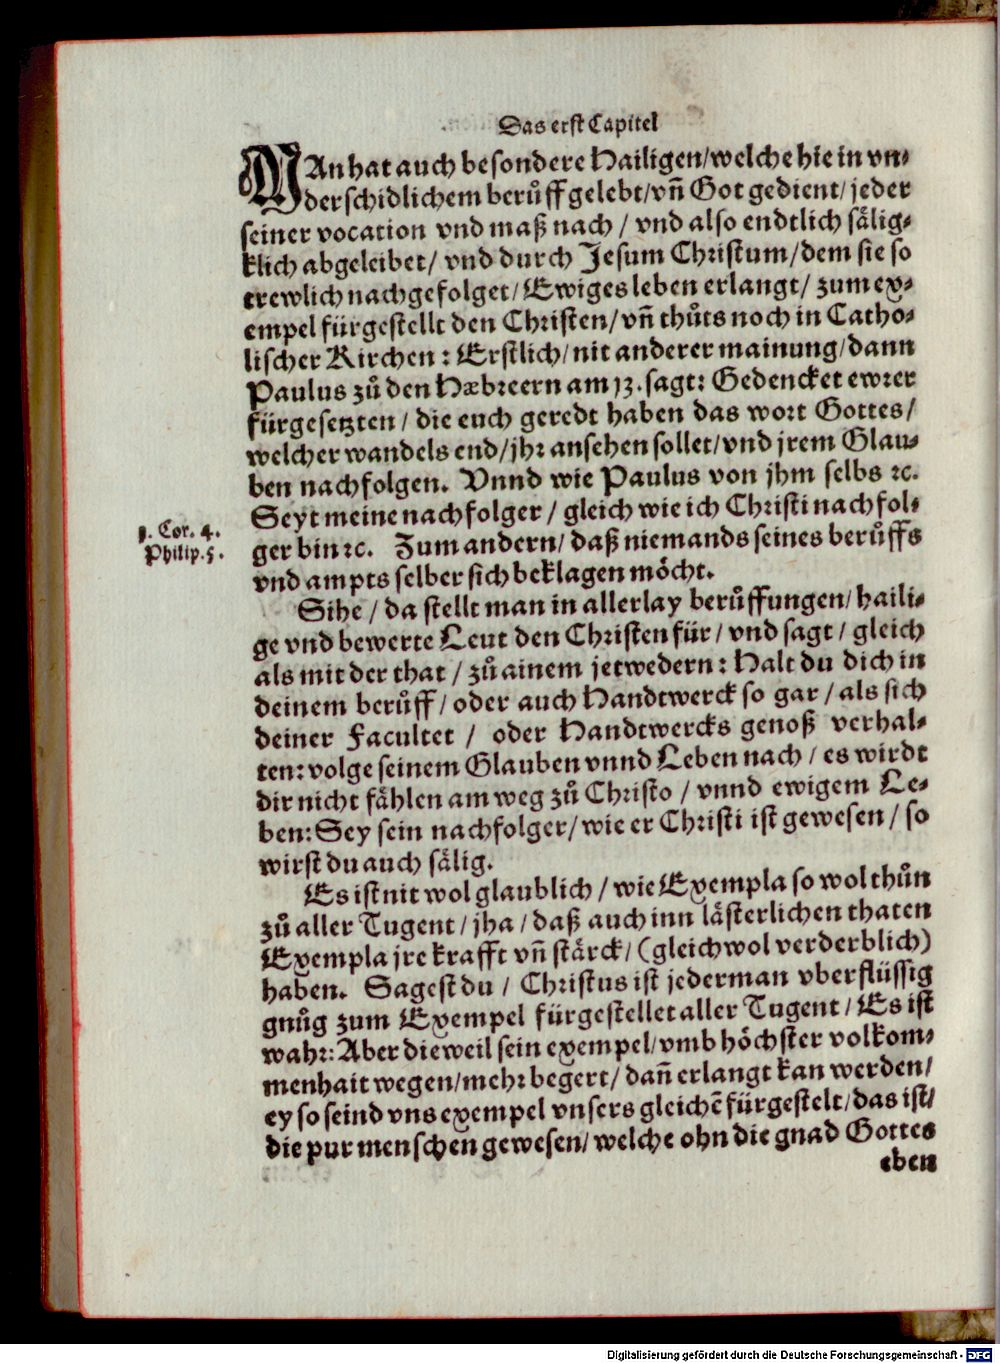 Das erst Capitel
MAn hat auch besondere Hailigen/welche hie in vn-
derschidlichem berůff gelebt/vñ Got gedient/jeder
seiner vocation vnd maß nach / vnd also endtlich sälig-
klich abgeleibet/ vnd durch Jesum Christum/dem sie so
trewlich nachgefolget/Ewiges leben erlangt/ zum ex-
empel fürgestellt den Christen/vñ thůts noch in Catho-
lischer Kirchen: Erstlich/nit anderer mainung/dann
Paulus zů den Hæbreern am 13. sagt: Gedencket ewrer
fürgesetzten / die euch geredt haben das wort Gottes/
welcher wandels end/jhr ansehen sollet/vnd jrem Glau-
ben nachfolgen. Vnnd wie Paulus von jhm selbs ꝛc.
Seyt meine nachfolger / gleich wie ich Christi nachfol-
1. Cor. 4.
Philip. 5.
ger bin ꝛc. Zum andern/ daß niemands seines berůffs
vnd ampts selber sich beklagen möcht.
Sihe / da stellt man in allerlay berůffungen/ haili-
ge vnd bewerte Leut den Christen für/ vnd sagt / gleich
als mit der that / zů ainem jetwedern: Halt du dich in
deinem berůff / oder auch Handtwerck so gar / als sich
deiner Facultet / oder Handtwercks genoß verhal-
ten: volge seinem Glauben vnnd Leben nach / es wirdt
dir nicht fählen am weg zů Christo / vnnd ewigem Le-
ben: Sey sein nachfolger/ wie er Christi ist gewesen / so
wirst du auch sälig.
Es ist nit wol glaublich / wie Exempla so wol thůn
zů aller Tugent / jha / daß auch inn lästerlichen thaten
Exempla jre krafft vñ stärck/ (gleichwol verderblich)
haben. Sagest du / Christus ist jederman vberflüssig
gnůg zum Exempel fürgestellet aller Tugent / Es ist
wahr: Aber dieweil sein exempel/vmb höchster volkom-
menhait wegen/mehr begert/ dañ erlangt kan werden/
ey so seind vns exempel vnsers gleichē fürgestelt/das ist/
die pur menschen gewesen/ welche ohn die gnad Gottes
eben
Digitalisierung gefördert durch die Deutsche Forschungsgemeinschaft - DFG